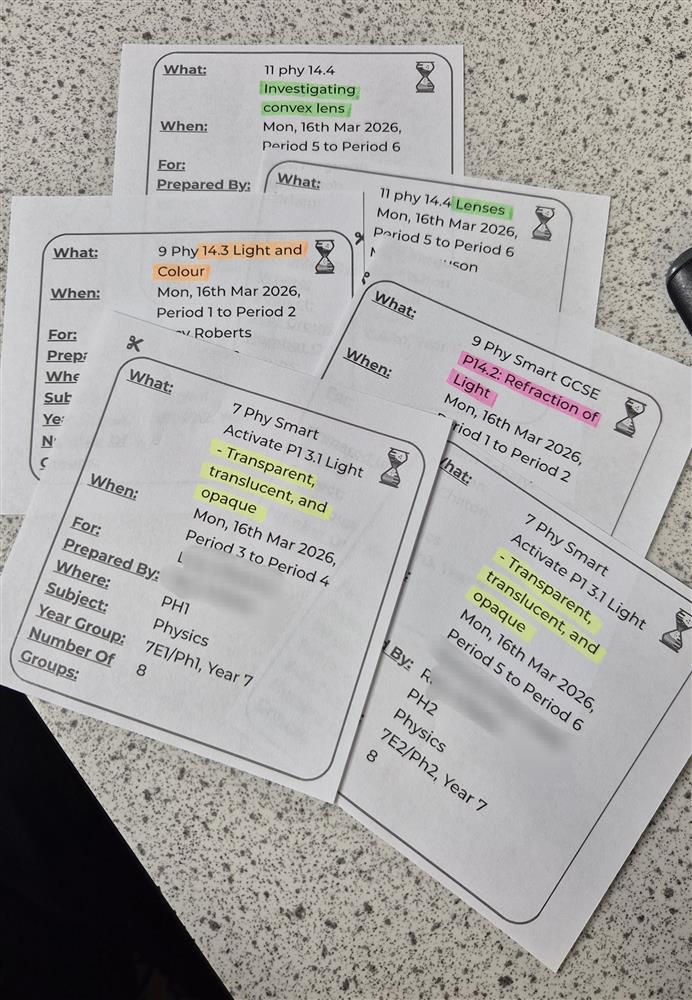 What: 11 phy 14.4
Investigating
convex lens
When: Mon, 16th Mar 2026,
Period 5 to Period 6
For:
Prepared By:
What: 11 phy 14.4 Lenses
Mon, 16th Mar 2026,
Period 5 to Period 6
What: 9 Phy 14.3 Light and
Colour
When: Mon, 16th Mar 2026,
Period 1 to Period 2
For: Roberts
What: 9 Phy Smart GCSE
P14.2: Refraction of
Light
When: Mon, 16th Mar 2026,
Period 1 to Period 2
What: 7 Phy Smart
Activate P1 3.1 Light
- Transparent,
translucent, and
opaque
When: Mon, 16th Mar 2026,
Period 3 to Period 4
For:
Prepared By:
Where: PH1
Subject: Physics
Year Group: 7E1/Ph1, Year 7
Number Of 8
Groups:
What: 7 Phy Smart
Activate P1 3.1 Light
- Transparent,
translucent, and
opaque
Mon, 16th Mar 2026,
Period 5 to Period 6
By:
PH2
Physics
7E2/Ph2, Year 7
8